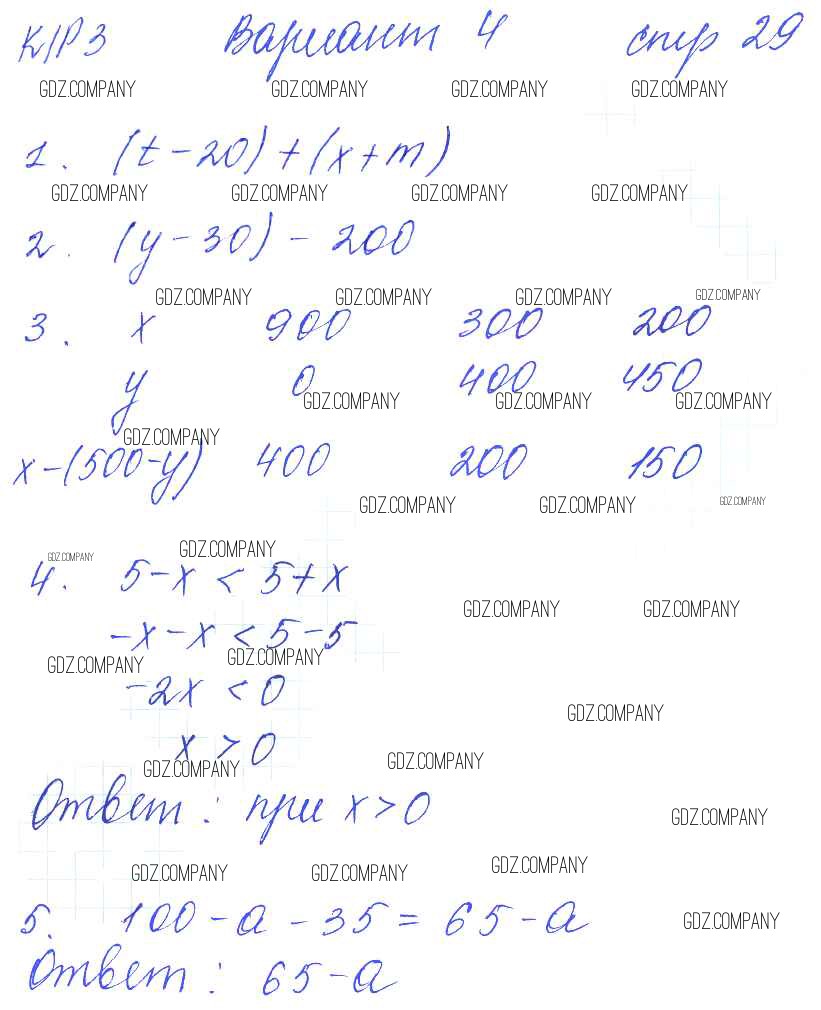 К/Р 3 Вариант 4 стр 29
GDZ.COMPANY GDZ.COMPANY GDZ.COMPANY GDZ.COMPANY
1. (t-20)+(x+m)
GDZ.COMPANY GDZ.COMPANY GDZ.COMPANY GDZ.COMPANY
2. (y-30)-200
GDZ.COMPANY GDZ.COMPANY GDZ.COMPANY GDZ.COMPANY
3. x 900 300 200
y 0 400 450
GDZ.COMPANY GDZ.COMPANY GDZ.COMPANY
GDZ.COMPANY
x-(500-y) 400 200 150
GDZ.COMPANY GDZ.COMPANY GDZ.COMPANY
GDZ.COMPANY GDZ.COMPANY
4. 5-x < 5+x
GDZ.COMPANY GDZ.COMPANY
-x-x < 5-5
GDZ.COMPANY GDZ.COMPANY
-2x < 0
GDZ.COMPANY
x > 0
GDZ.COMPANY GDZ.COMPANY
Ответ: при x>0
GDZ.COMPANY
GDZ.COMPANY GDZ.COMPANY GDZ.COMPANY
5. 100-a-35=65-a
GDZ.COMPANY
Ответ: 65-a